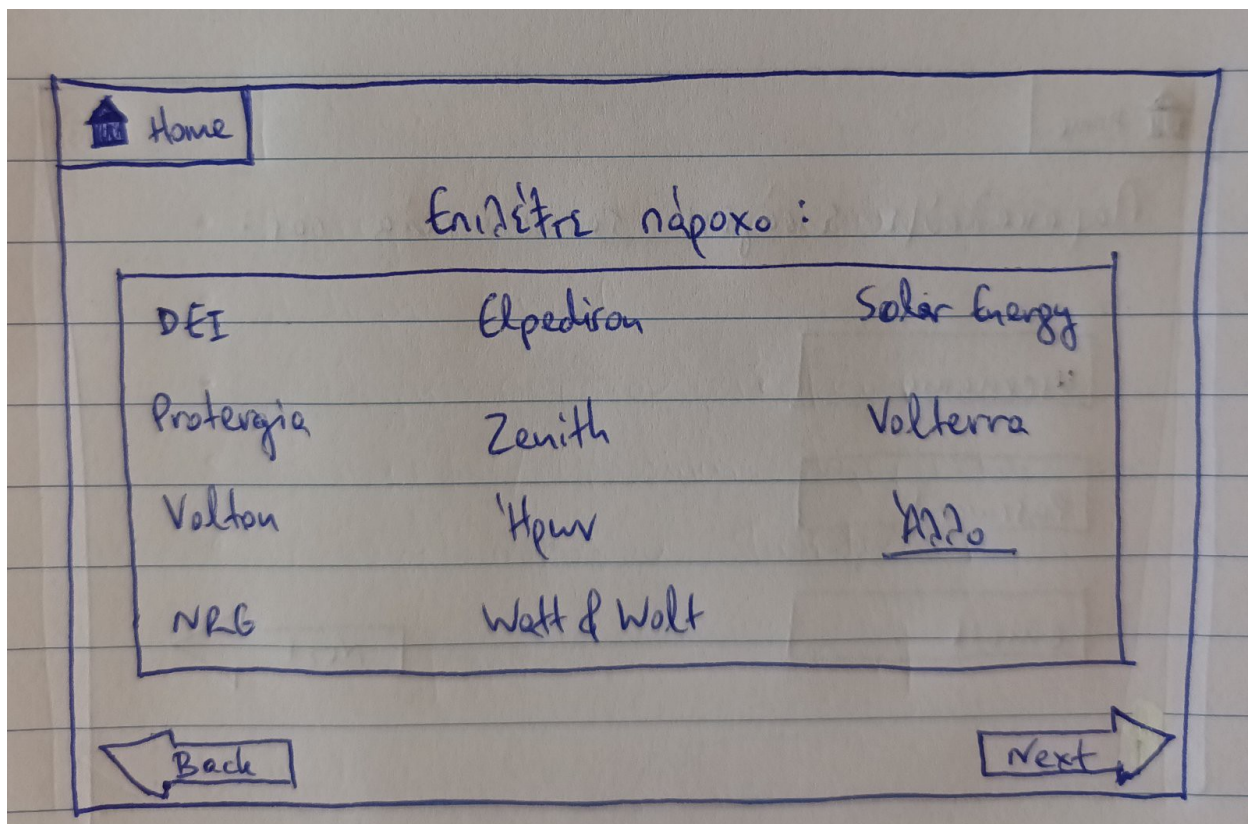 Home
Επιλέξτε πάροχο :
DEI Elpedison Solar Energy
Protergia Zenith Volterra
Volton Ήρων Άλλο
NRG Watt & Wolt
Back Next